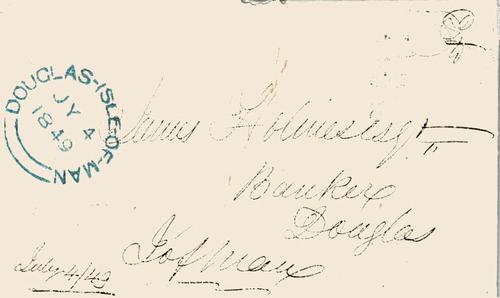 DOUGLAS-ISLE-OF-MAN
JY 4
1849
James Holmes esqr
Banker
Douglas
I of man
July 4/49